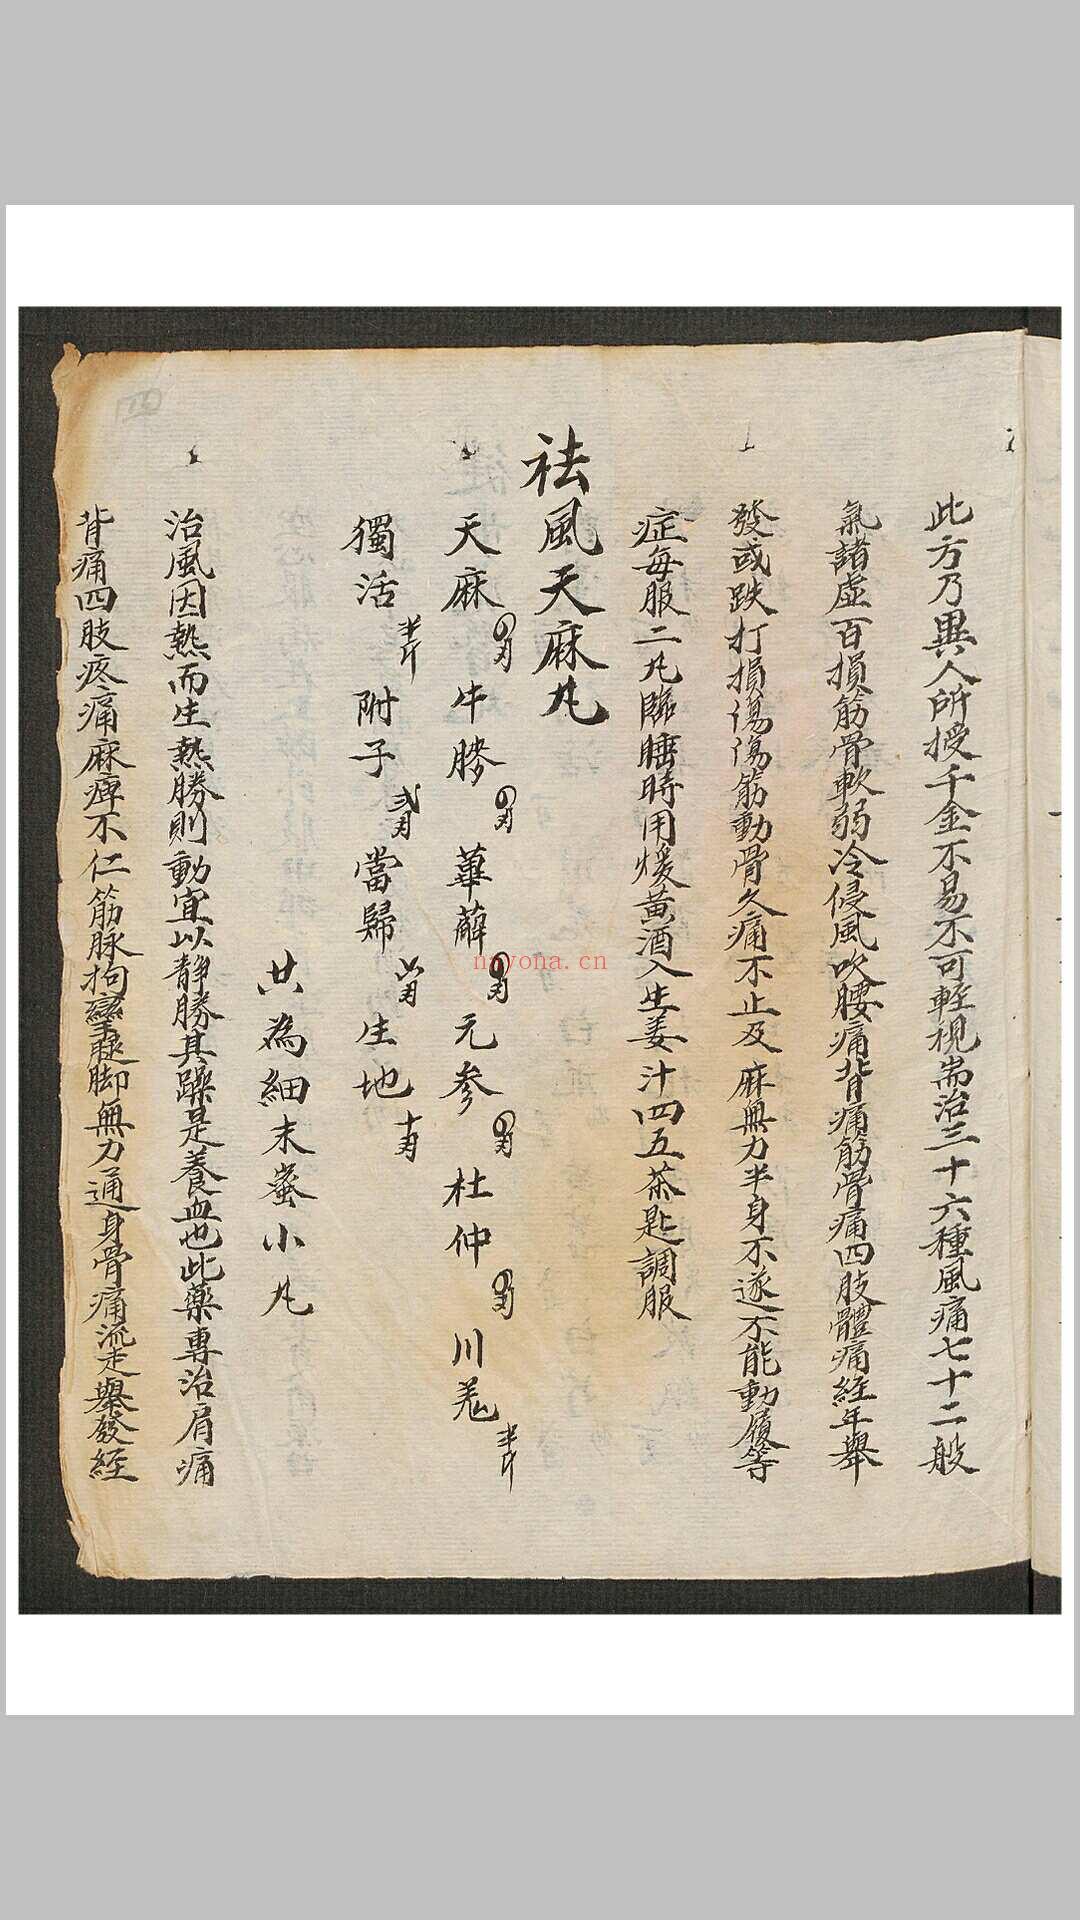 此方乃異人所授千金不易不可輕視耑治三十六種風痛七十二般
氣諸虛百損筋骨軟弱冷侵風吹腰痛背痛筋骨痛四肢體痛經年舉
發或跌打損傷傷筋動骨久痛不止及麻無力半身不遂不能動履等
症每服二丸臨睡時用煖黃酒入生姜汁四五茶匙調服
祛風天麻丸
天麻 牛膝 萆薢 元參 杜仲 川羗半斤
獨活半斤 附子弍両 當歸 生地十両
共為細末蜜小丸
治風因熱而生熱勝則動宜以靜勝其躁是養血也此藥專治肩痛
背痛四肢疼痛麻痺不仁筋脉拘攣腿脚無力通身骨痛流走舉發經
nayona.cn